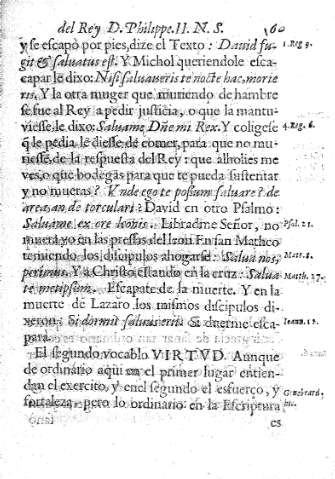 del Rey D. Philippe. II. N. S. 60
y se escapò por pies, dize el Texto: David fu- 1. Reg. 9.
git & saluatus est. Y Michol queriendole esca-
capar le dixo: Nisi saluaveris te nocte hac, morie
ris. Y la otra muger que muriendo de hambre
se fue al Rey a pedir justicia, o que la mantu-
viesse le dixo: Salva me Dñe mi Rex. Y coligese 4. Reg. 6.
q̃ le pedia le diesse de comer, para que no mu-
riesse, de la respuesta del Rey: que alholies me
ves, o que bodegas para que te pueda sustentar
y no mueras? Vnde ego te possum saluare? de
area, an de torculari: David en otro Psalmo:
Salua me ex ore leonis. Libradme Señor, no Psal. 21.
muera yo en las pressas del leon En san Matheo
temiendo los discipulos ahogarse: Salua nos, Matt. 8.
perimus. Y a Christo estando en la cruz: Salua Matth. 27.
te metipsum. Escapate de la muerte. Y en la
muerte de Lazaro los mismos discipulos di-
xeron: Si dormit saluus erit: Si duerme esca- Ioann. 11.
para.
El segundo vocablo VIRTVD. Aunque
de ordinario aqui en el primer lugar entien-
dan el exercito, y en el segundo el esfuerço, y Genebrard.
fortaleza, pero lo ordinario en la Escriptura hic.
es